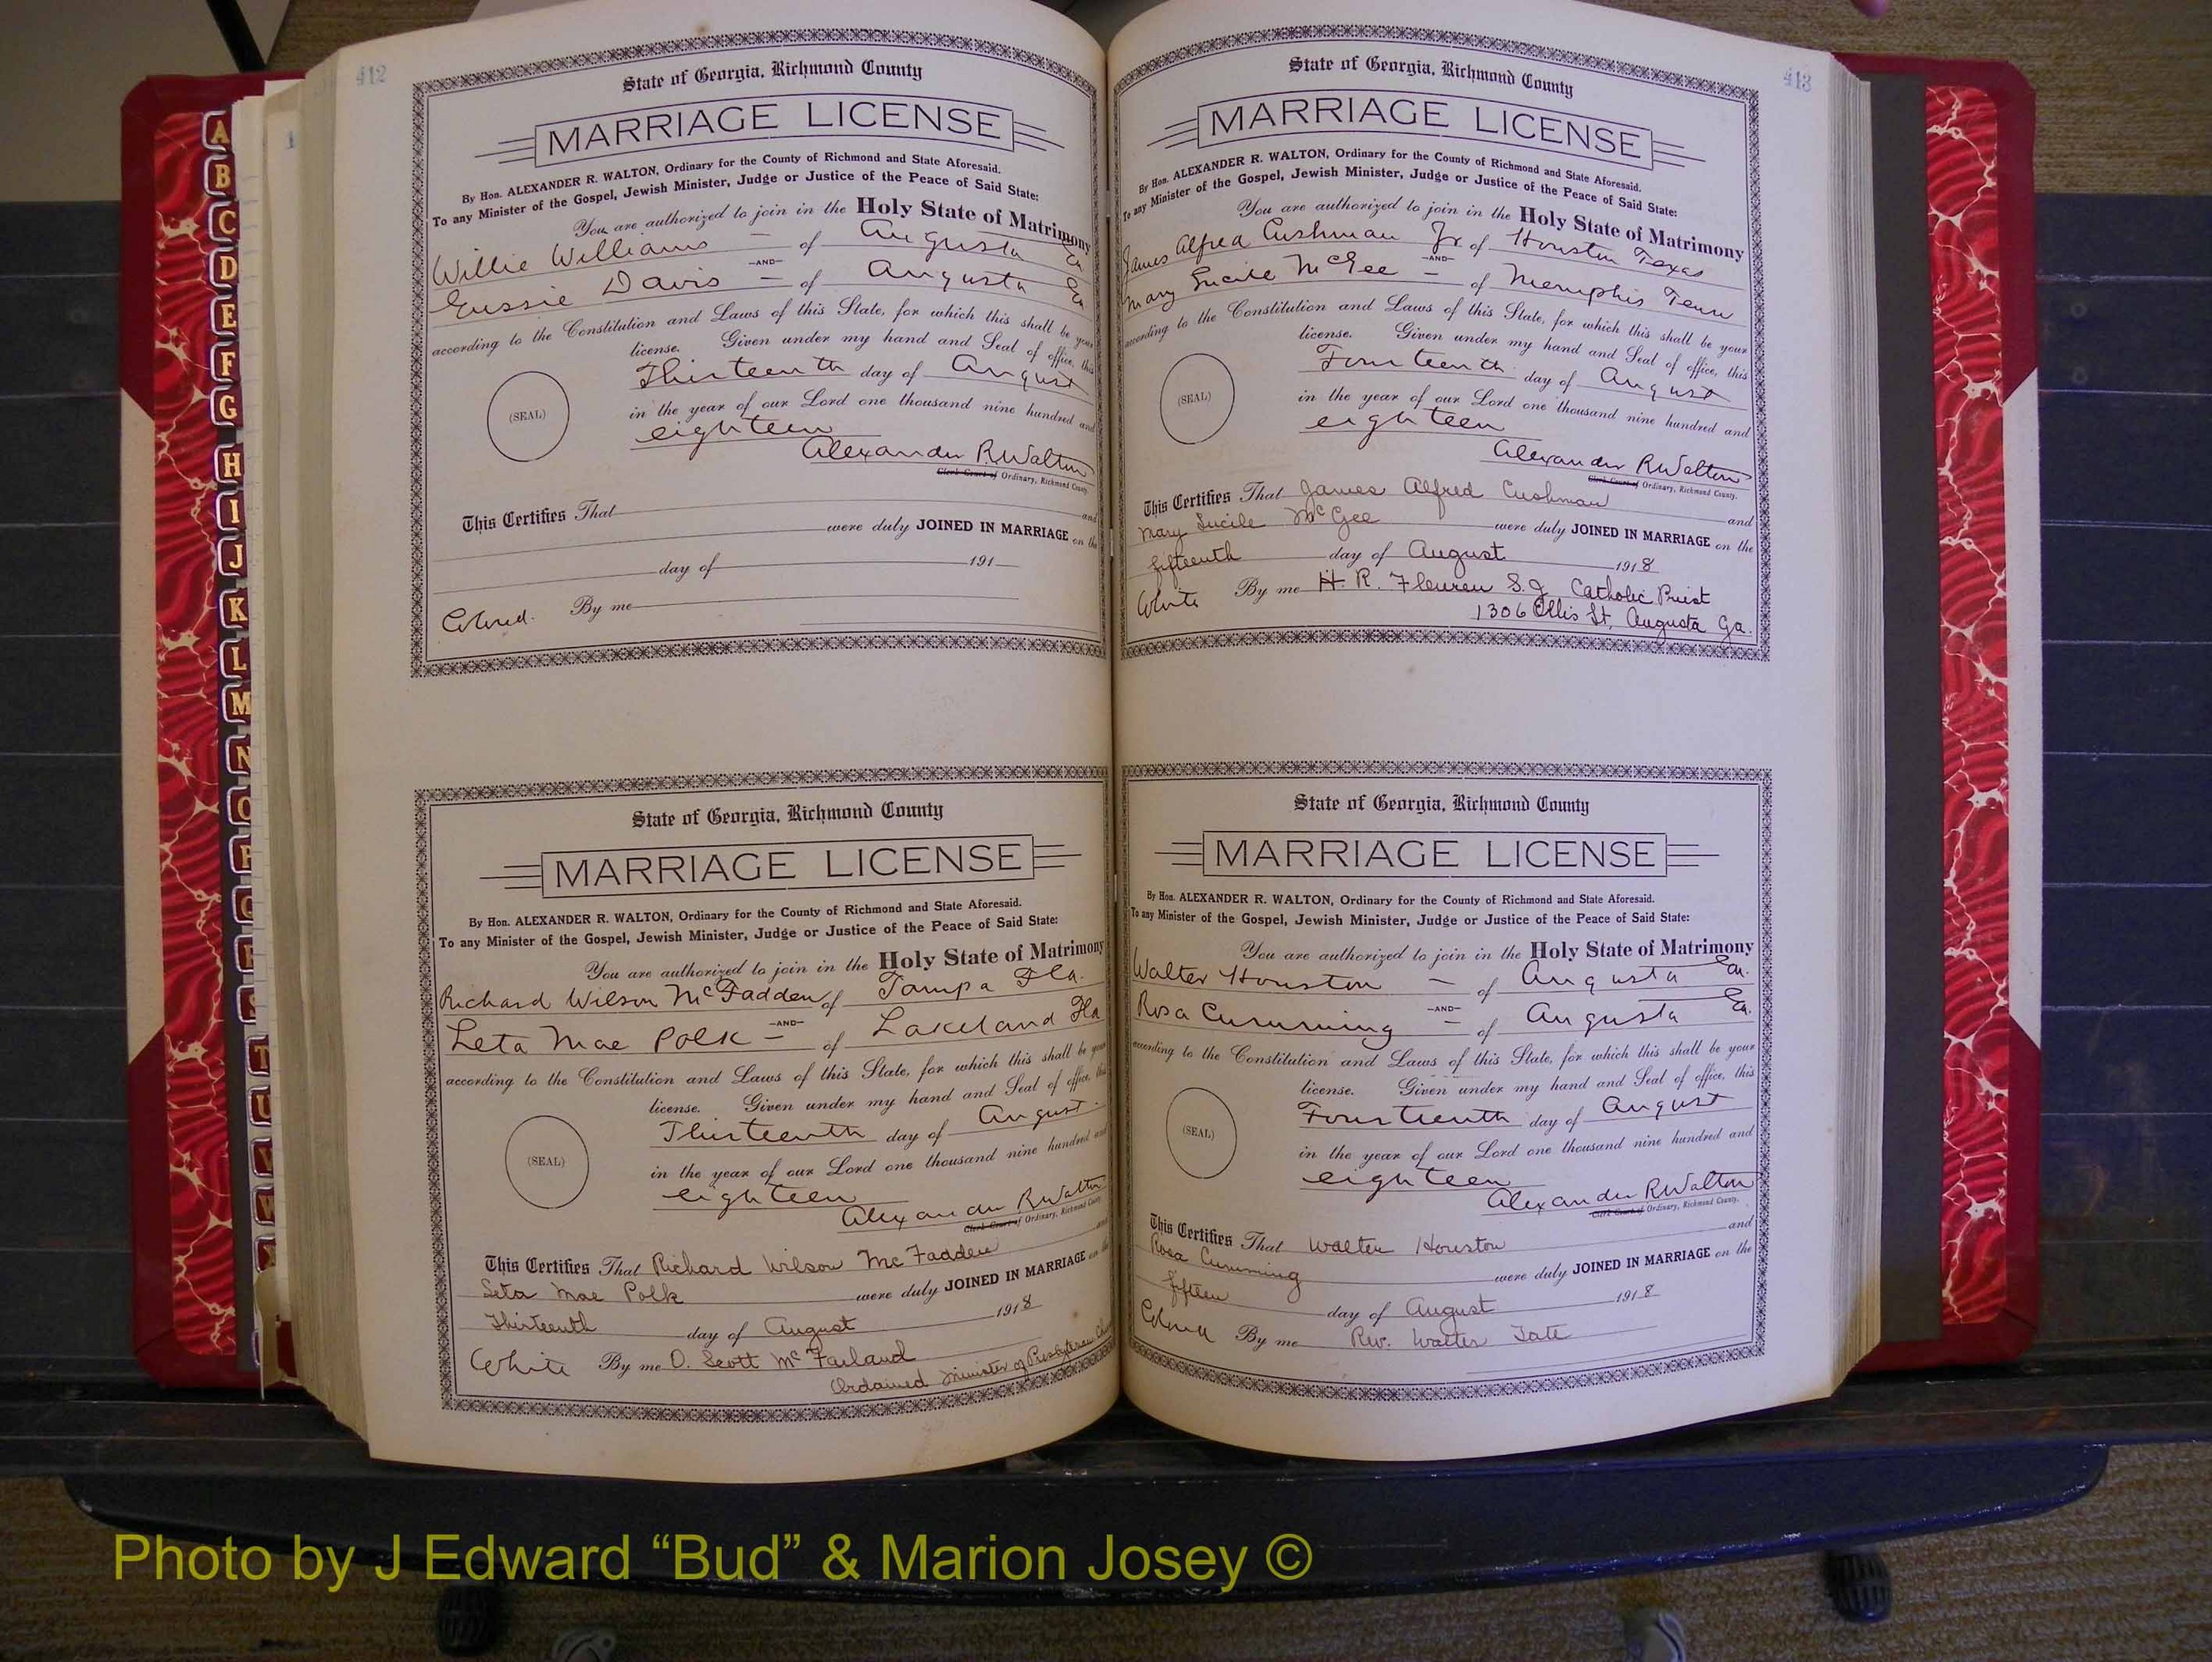 412
State of Georgia, Richmond County
MARRIAGE LICENSE
By Hon. ALEXANDER R. WALTON, Ordinary for the County of Richmond and State Aforesaid.
To any Minister of the Gospel, Jewish Minister, Judge or Justice of the Peace of Said State:
You are authorized to join in the Holy State of Matrimony
Willie Williams — of Augusta Ga
—AND—
Gussie Davis — of Augusta Ga
according to the Constitution and Laws of this State, for which this shall be your
license. Given under my hand and Seal of office, this
Thirteenth day of August
(SEAL)
in the year of our Lord one thousand nine hundred and
eighteen
Alexander R Walton
Clerk Court of Ordinary, Richmond County.
This Certifies That and
were duly JOINED IN MARRIAGE on the
day of 191
Colored. By me
State of Georgia, Richmond County
MARRIAGE LICENSE
By Hon. ALEXANDER R. WALTON, Ordinary for the County of Richmond and State Aforesaid.
To any Minister of the Gospel, Jewish Minister, Judge or Justice of the Peace of Said State:
You are authorized to join in the Holy State of Matrimony
Richard Wilson McFadden of Tampa Fla.
—AND—
Leta Mae Polk — of Lakeland Fla
according to the Constitution and Laws of this State, for which this shall be your
license. Given under my hand and Seal of office, this
Thirteenth day of August.
(SEAL)
in the year of our Lord one thousand nine hundred and
eighteen
Alexander R Walton
Clerk Court of Ordinary, Richmond County
This Certifies That Richard Wilson McFadden and
Leta Mae Polk were duly JOINED IN MARRIAGE on the
Thirteenth day of August 1918
White By me O. Scott McFarland
Ordained Minister of Presbyterian
413
State of Georgia, Richmond County
MARRIAGE LICENSE
By Hon. ALEXANDER R. WALTON, Ordinary for the County of Richmond and State Aforesaid.
To any Minister of the Gospel, Jewish Minister, Judge or Justice of the Peace of Said State:
You are authorized to join in the Holy State of Matrimony
James Alfred Cushman Jr. of Houston Texas
—AND—
Mary Lucile McGee — of Memphis Tenn
according to the Constitution and Laws of this State, for which this shall be your
license. Given under my hand and Seal of office, this
Fourteenth day of August
(SEAL)
in the year of our Lord one thousand nine hundred and
eighteen
Alexander R Walton
Clerk Court of Ordinary, Richmond County.
This Certifies That James Alfred Cushman and
Mary Lucile McGee were duly JOINED IN MARRIAGE on the
fifteenth day of August 1918
White By me H. R. Fleuren S.J. Catholic Priest
1306 Ellis St. Augusta Ga.
State of Georgia, Richmond County
MARRIAGE LICENSE
By Hon. ALEXANDER R. WALTON, Ordinary for the County of Richmond and State Aforesaid.
To any Minister of the Gospel, Jewish Minister, Judge or Justice of the Peace of Said State:
You are authorized to join in the Holy State of Matrimony
Walter Houston — of Augusta Ga.
—AND—
Rosa Cumming — of Augusta Ga.
according to the Constitution and Laws of this State, for which this shall be your
license. Given under my hand and Seal of office, this
Fourteenth day of August
(SEAL)
in the year of our Lord one thousand nine hundred and
eighteen
Alexander R Walton
Clerk Court of Ordinary, Richmond County.
This Certifies That Walter Houston and
Rosa Cumming were duly JOINED IN MARRIAGE on the
fifteen day of August 1918
Colored By me Rev. Walter Tate
A
B
C
D
E
F
G
H
I
J
K
L
M
N
O
P
Q
R
S
T
U
V
W
Photo by J Edward “Bud” & Marion Josey ©